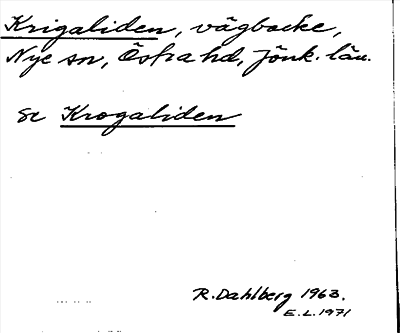 Krigaliden, vägbacke,
Nye sn, Östra hd, Jönk. län.
se Krogaliden
R. Dahlberg 1963.
E.L. 1971